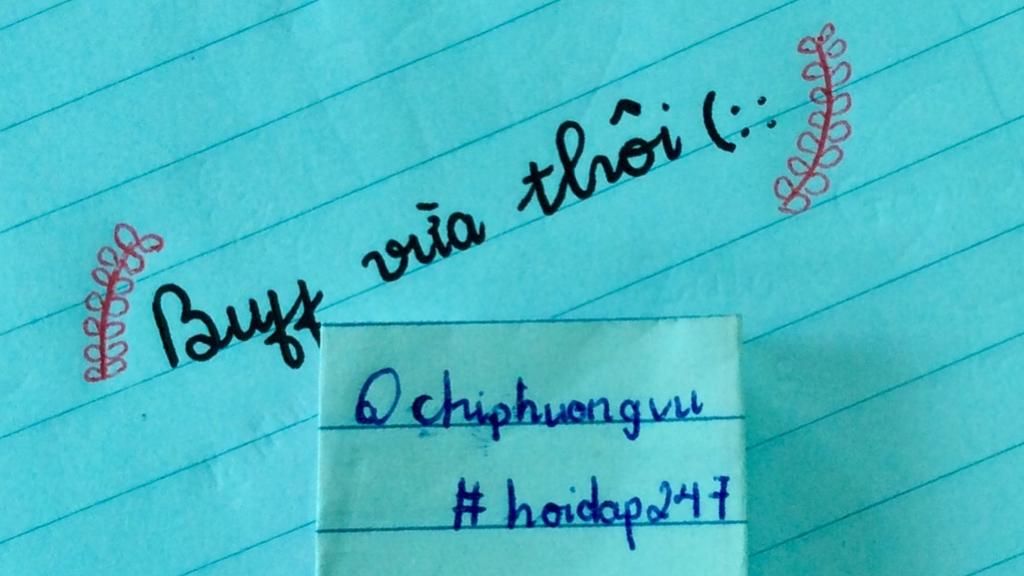 Buff vừa thôi (::
@chiphuongvu
#hoidap247